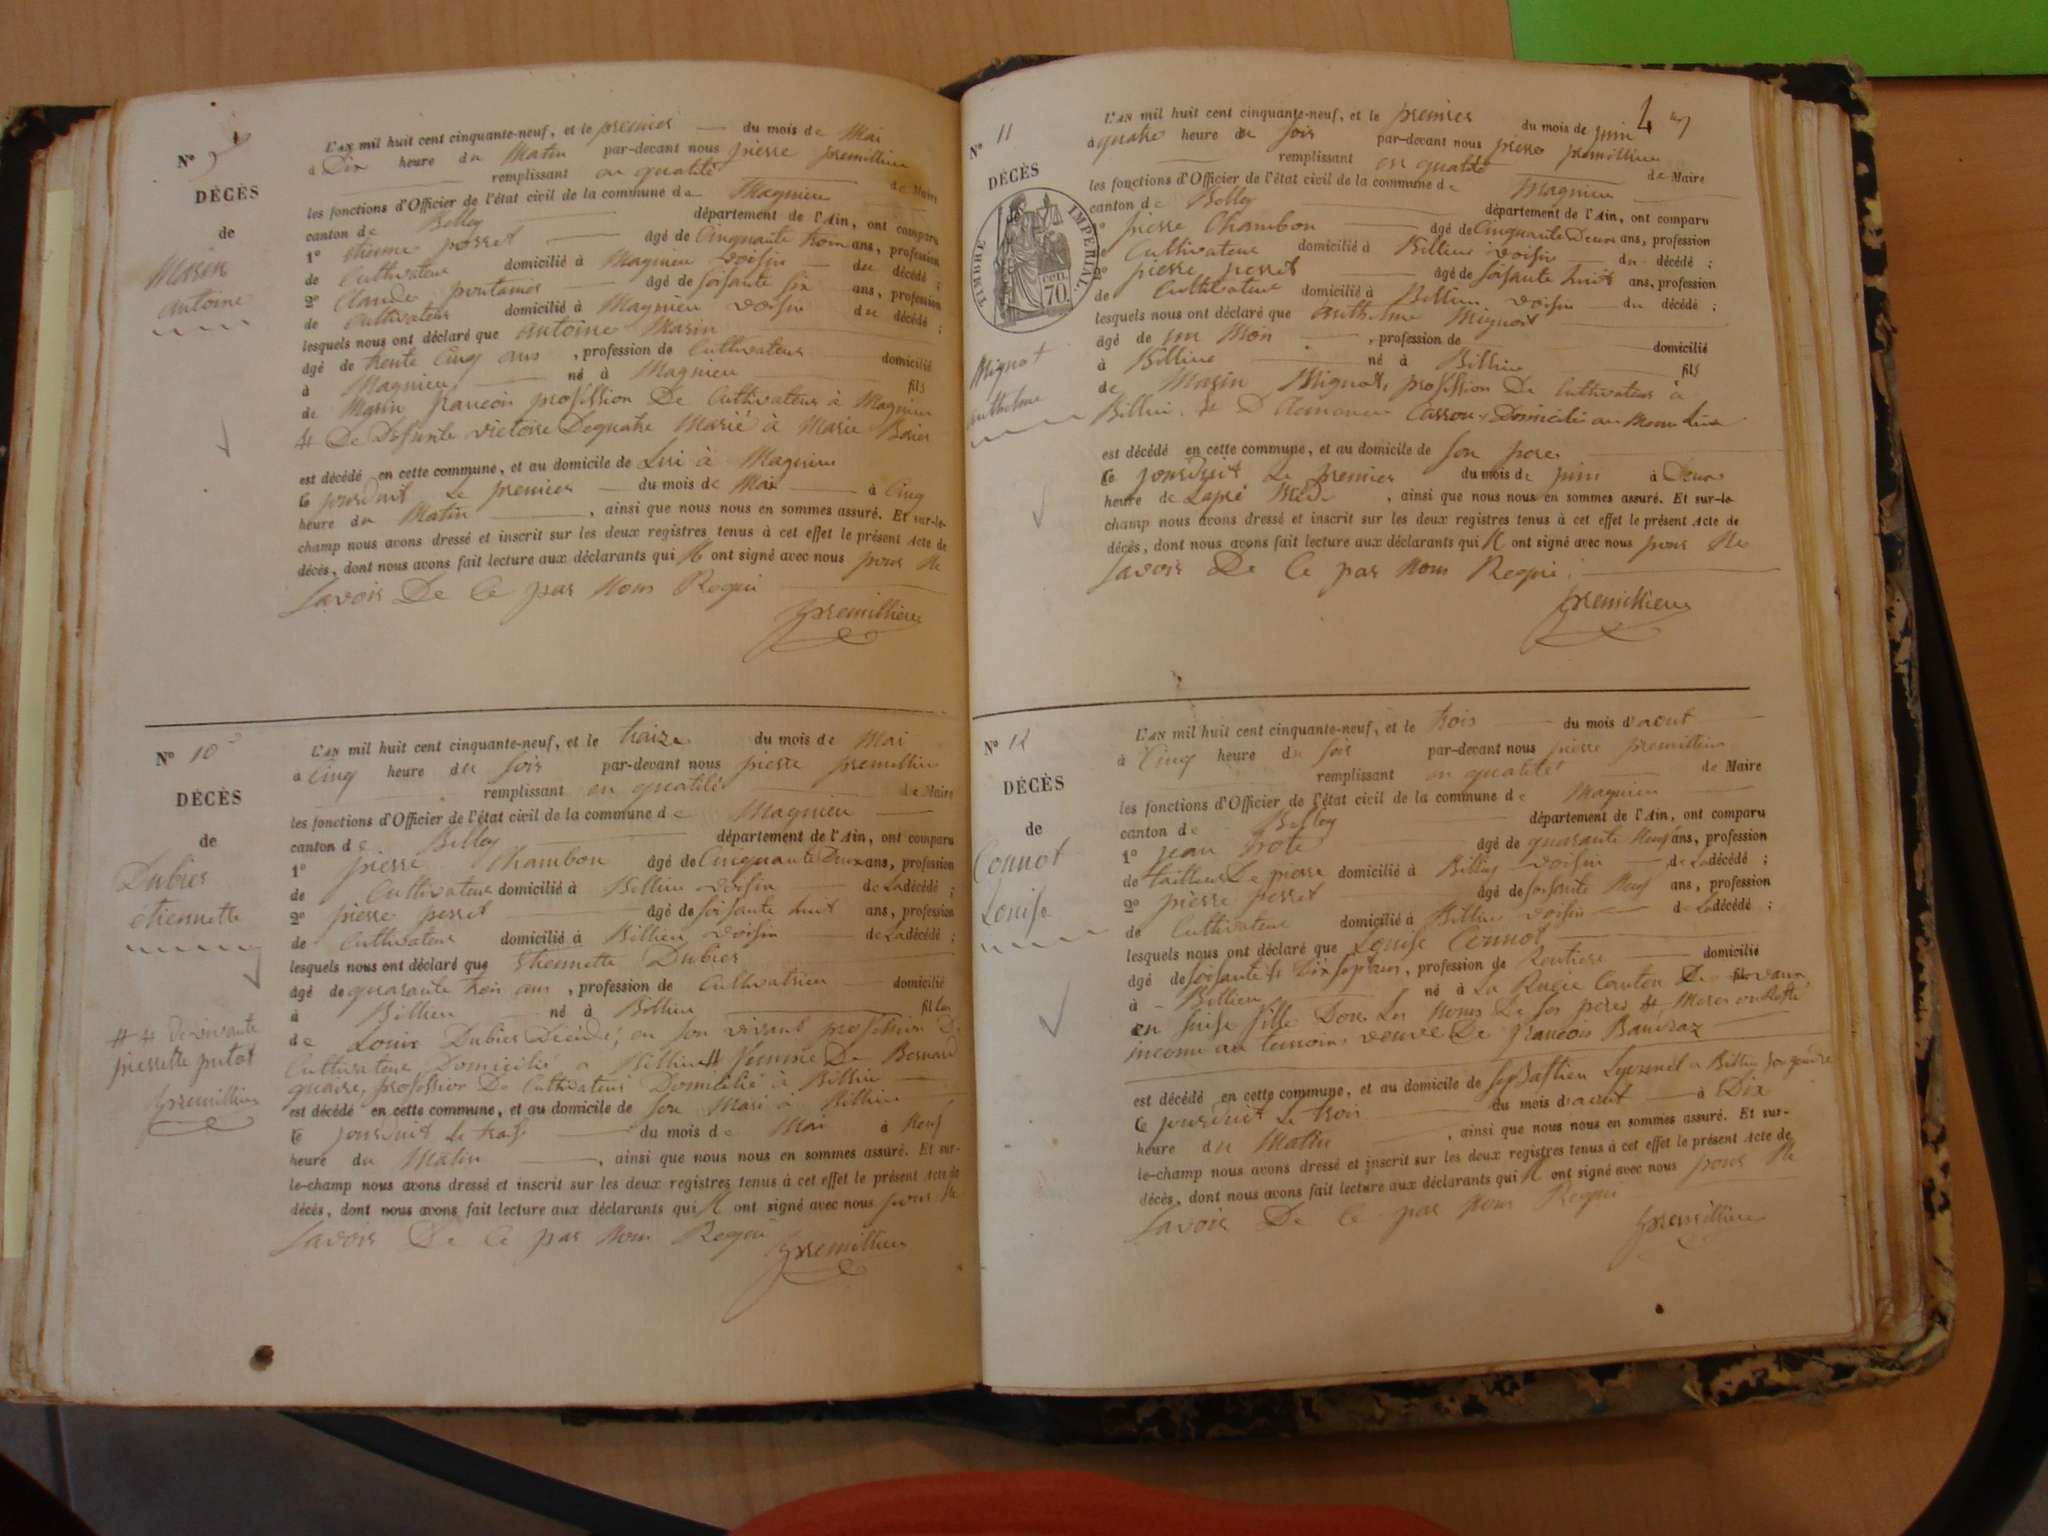 N° 9
DÉCÈS
de
Marin
antoine
L'AN mil huit cent cinquante-neuf, et le premier du mois de Mai
à Dix heure du Matin par-devant nous pierre premillieu
remplissant en qualité de Maire
les fonctions d'Officier de l'état civil de la commune de Magnieu
canton de Belley département de l'Ain, ont comparu
1° étienne perret âgé de Cinquante trois ans, profession
de Cultivateur domicilié à Magnieu voisin du décédé ;
2° Claude âgé de soisante six ans, profession
de Cultivateur domicilié à Magnieu voisin du décédé ;
lesquels nous ont déclaré que antoine Marin
âgé de trente Cinq ans , profession de Cultivateur domicilié
à Magnieu né à Magnieu fils
de Marin francois profession De Cultivateur à Magnieu
& De Defunte victoire Dequatre Marié à Marie
est décédé en cette commune, et au domicile de Lui à Magnieu
Ce jourduit Le premier du mois de Mai à Cinq
heure du Matin , ainsi que nous nous en sommes assuré. Et sur-le-
champ nous avons dressé et inscrit sur les deux registres tenus à cet effet le présent Acte de
décès, dont nous avons fait lecture aux déclarants qui N ont signé avec nous pour Ne
savoir De Ce par Nous Requi
premillieu
N° 10
DÉCÈS
de
Dubier
étiennette
L'AN mil huit cent cinquante-neuf, et le traize du mois de Mai
à Cinq heure du soir par-devant nous pierre premillieu
remplissant en qualité de Maire
les fonctions d'Officier de l'état civil de la commune de Magnieu
canton de Belley département de l'Ain, ont comparu
1° pierre Chambon âgé de Cinquante Deux ans, profession
de Cultivateur domicilié à Billieu voisin de La décédé ;
2° pierre perret âgé de soisante huit ans, profession
de Cultivateur domicilié à Billieu voisin de La décédé ;
lesquels nous ont déclaré que Etiennette Dubier
âgé de quarante trois ans , profession de Cultivatrice domicilié
à Billieu né à Billieu fil
de Louis Dubier Décédé, en son vivant profession De
Cultivateur Domicilié a Billieu # femme De Bernard
profession De Cultivateur Domicilié à Billieu
## De vivante
pierrette putot
premillieu
est décédé en cette commune, et au domicile de son Mari à Billieu
Ce jourduit Le traize du mois de Mai à Neuf
heure du Matin , ainsi que nous nous en sommes assuré. Et sur-
le-champ nous avons dressé et inscrit sur les deux registres tenus à cet effet le présent Acte de
décès, dont nous avons fait lecture aux déclarants qui N ont signé avec nous pour Ne
savoir De Ce par Nous Requi
premillieu
4
N° 11
DÉCÈS
de
TIMBRE IMPÉRIAL.
70 cen.
Mignot
anthelme
L'AN mil huit cent cinquante-neuf, et le premier du mois de juin
à quatre heure du soir par-devant nous pierre premillieu
remplissant en qualité de Maire
les fonctions d'Officier de l'état civil de la commune de Magnieu
canton de Belley département de l'Ain, ont comparu
1° pierre Chambon âgé de Cinquante Deux ans, profession
de Cultivateur domicilié à Billieu voisin du décédé ;
2° pierre perret âgé de soisante huit ans, profession
de Cultivateur domicilié à Billieu voisin du décédé ;
lesquels nous ont déclaré que anthelme Mignot
âgé de un Mois , profession de domicilié
à Billieu né à Billieu fils
de Marin Mignot, profession De Cultivateur à
Billieu & D Casson Domicilié au Meme Lieu
est décédé en cette commune, et au domicile de son pere
Ce jourduit Le premier du mois de juin à Deux
heure de Lapré Midi , ainsi que nous nous en sommes assuré. Et sur-le-
champ nous avons dressé et inscrit sur les deux registres tenus à cet effet le présent Acte de
décès, dont nous avons fait lecture aux déclarants qui N ont signé avec nous pour Ne
savoir De Ce par Nous Requi
premillieu
N° 12
DÉCÈS
de
Connot
Louise
L'AN mil huit cent cinquante-neuf, et le trois du mois d'aout
à Cinq heure du soir par-devant nous pierre premillieu
remplissant en qualité de Maire
les fonctions d'Officier de l'état civil de la commune de Magnieu
canton de Belley département de l'Ain, ont comparu
1° jean âgé de quarante Neuf ans, profession
de tailleur De pierre domicilié à Billieu voisin de La décédé ;
2° pierre perret âgé de soisante Neuf ans, profession
de Cultivateur domicilié à Billieu voisin de La décédé ;
lesquels nous ont déclaré que Louise Connot
âgé de soisante & Dix sept ans , profession de Rentiere domicilié
à Billieu né à La Canton De fil
en suise fille Dont Les Noms De ses pere & Mere
inconu au temoins veuve De francois
est décédé en cette commune, et au domicile de sebastien a Billieu son gendre
Ce jourduit Le trois du mois d'aout à Dix
heure du Matin , ainsi que nous nous en sommes assuré. Et sur-
le-champ nous avons dressé et inscrit sur les deux registres tenus à cet effet le présent Acte de
décès, dont nous avons fait lecture aux déclarants qui N ont signé avec nous pour Ne
savoir De Ce par Nous Requi
premillieu